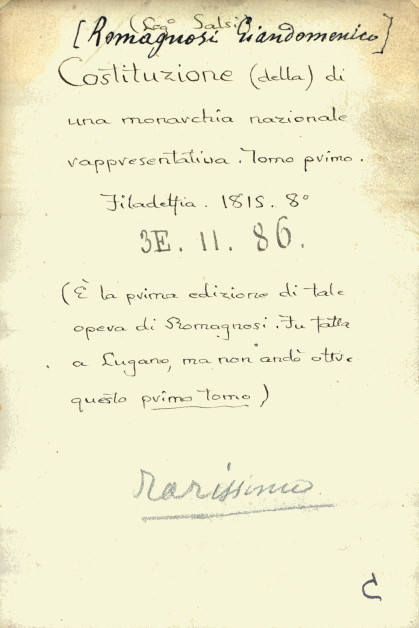 (Legº Salsi)
[Romagnosi Giandomenico]
Costituzione (della) di
una monarchia nazionale
rappresentativa. Tomo primo.
Filadelfia. 1815. 8º
3E. 11. 86.
(È la prima edizione di tale
opera di Romagnosi. Fu fatta
a Lugano, ma non andò oltre
questo primo tomo)
rarissimo
C